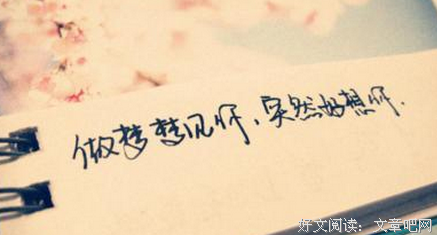 做梦梦见你，突然好想你.
好文阅读：文章吧网